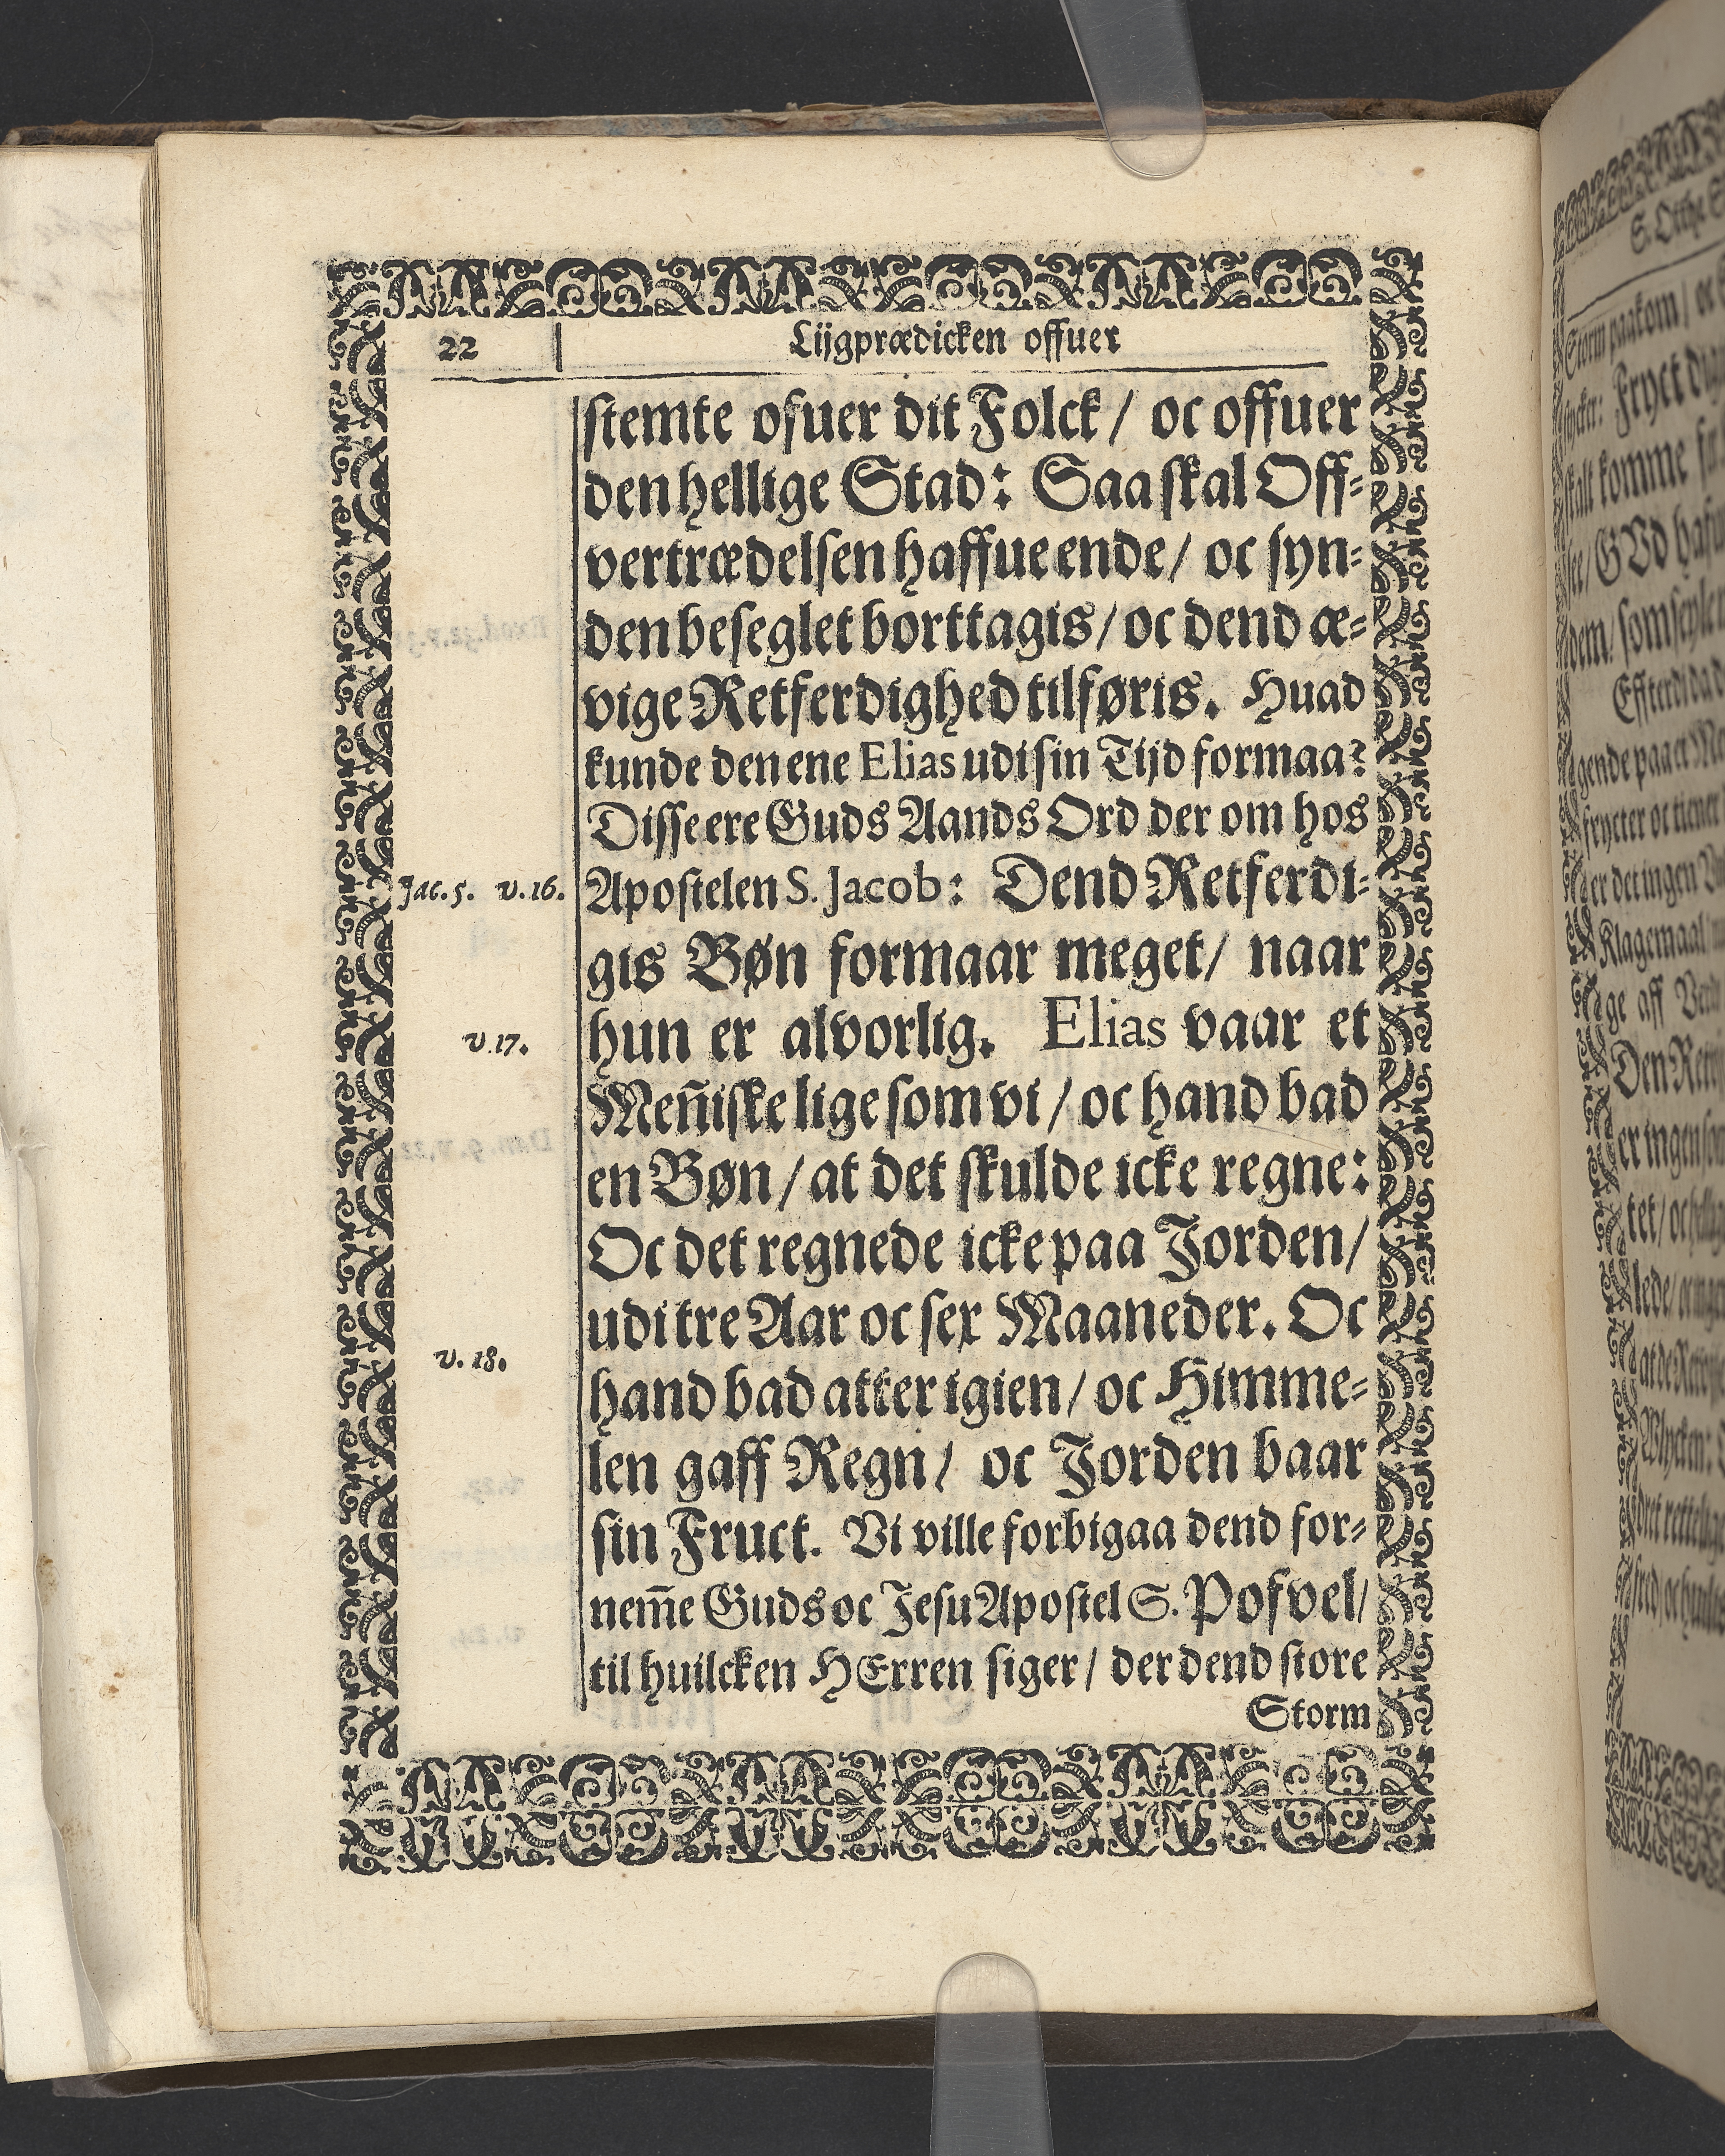 22
Lijgprædicken offuer
stemte ofuer dit Folck / oc offuer
den hellige Stad: Saa skal Off-
vertrædelsen haffue ende / oc syn-
den beseglet borttagis / oc dend æ-
vige Retferdighed tilføris. Huad
kunde den ene Elias udi sin Tijd formaa?
Disse ere Guds Aands Ord der om hos
Jac. 5. v. 16.
Apostelen S. Jacob: Dend Retferdi-
gis Bøn formaar meget / naar
v. 17.
hun er alvorlig. Elias vaar et
Men̄iske lige som vi / oc hand bad
en Bøn / at det skulde icke regne:
Oc det regnede icke paa Jorden /
udi tre Aar oc sex Maaneder. Oc
v. 18.
hand bad atter igien / oc Himme-
len gaff Regn / oc Jorden baar
sin Fruct. Vi ville forbigaa dend for-
nem̄e Guds oc Jesu Apostel S. Pofvel /
til huilcken HErren siger / der dend store
Storm
S. Otthe
Storm paakom / oc
Fryct
skalt komme
GUd
dem / som
Effterdi
gende paa et
frycter oc tiener
er det ingen
Klagemaal
ge aff
Den
er ingen
tet /
lede /